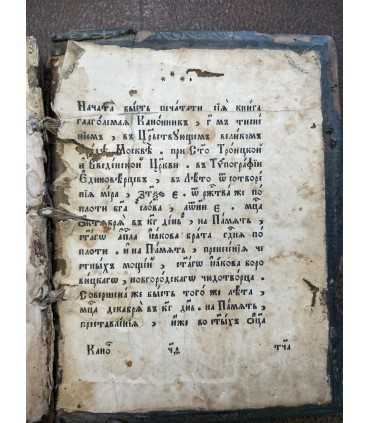 Начата бысть печатати сїѧ книга
глаголемаѧ Канонникъ , м҃ мъ тисне
нїемъ , въ Црⷭ҇твующемъ великомъ
Москвѣ . при Ст҃о Троицкой
и Введенской Цр҃кви . въ Тѵпографїи
Единовѣрцевъ , въ лѣто ѿ сотворе
нїѧ мїра , ҂зтч҃є . Ѿ ржⷭ҇тва же по
плоти бг҃а слова , ҂аѿп҃є . мцⷭ҇а
октѧбрѧ въ кг҃ день , на Памѧть ,
ст҃агѡ апⷭ҇ла Іакова брата гдⷭ҇нѧ по
плоти . и на Памѧть , пренесенїѧ че
стныхъ мощей , ст҃агѡ Іакова боро
вицкагѡ , новгородскагѡ чюдотворца .
Совершена же бысть того же лѣта ,
мцⷭ҇а декабрѧ въ кг҃ днь . на Памѧть ,
преставленїѧ , иже во ст҃ыхъ ѻц҃а
Кано чд҃ тч҃а